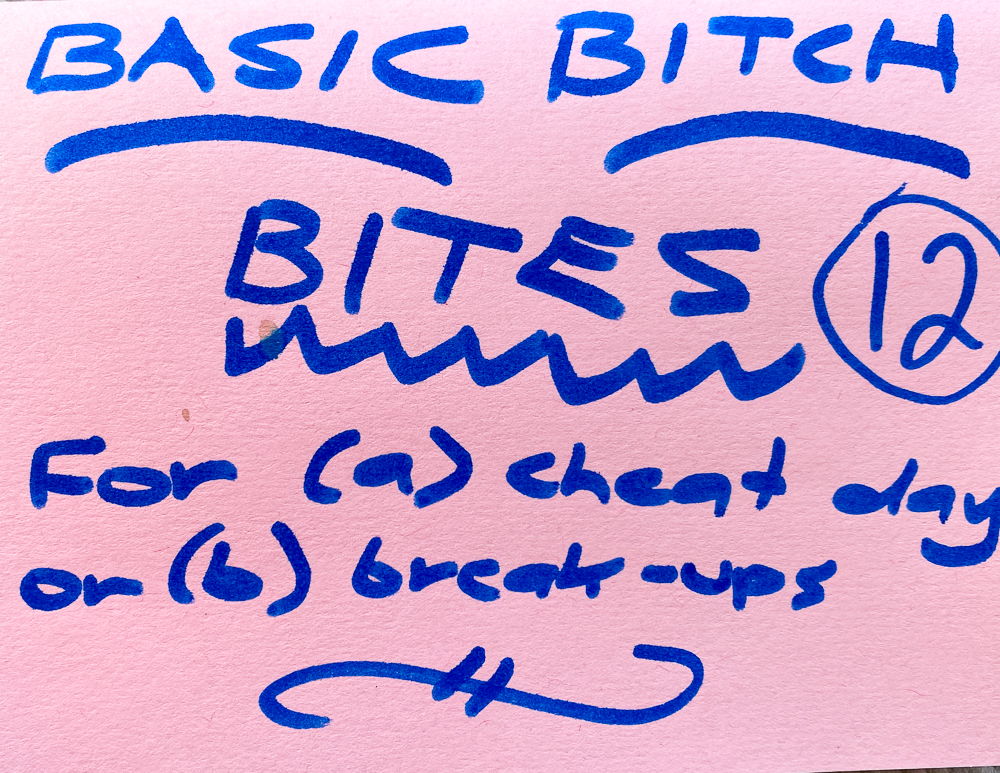 BASIC BITCH
BITES 12
For (a) cheat day
or (b) break-ups